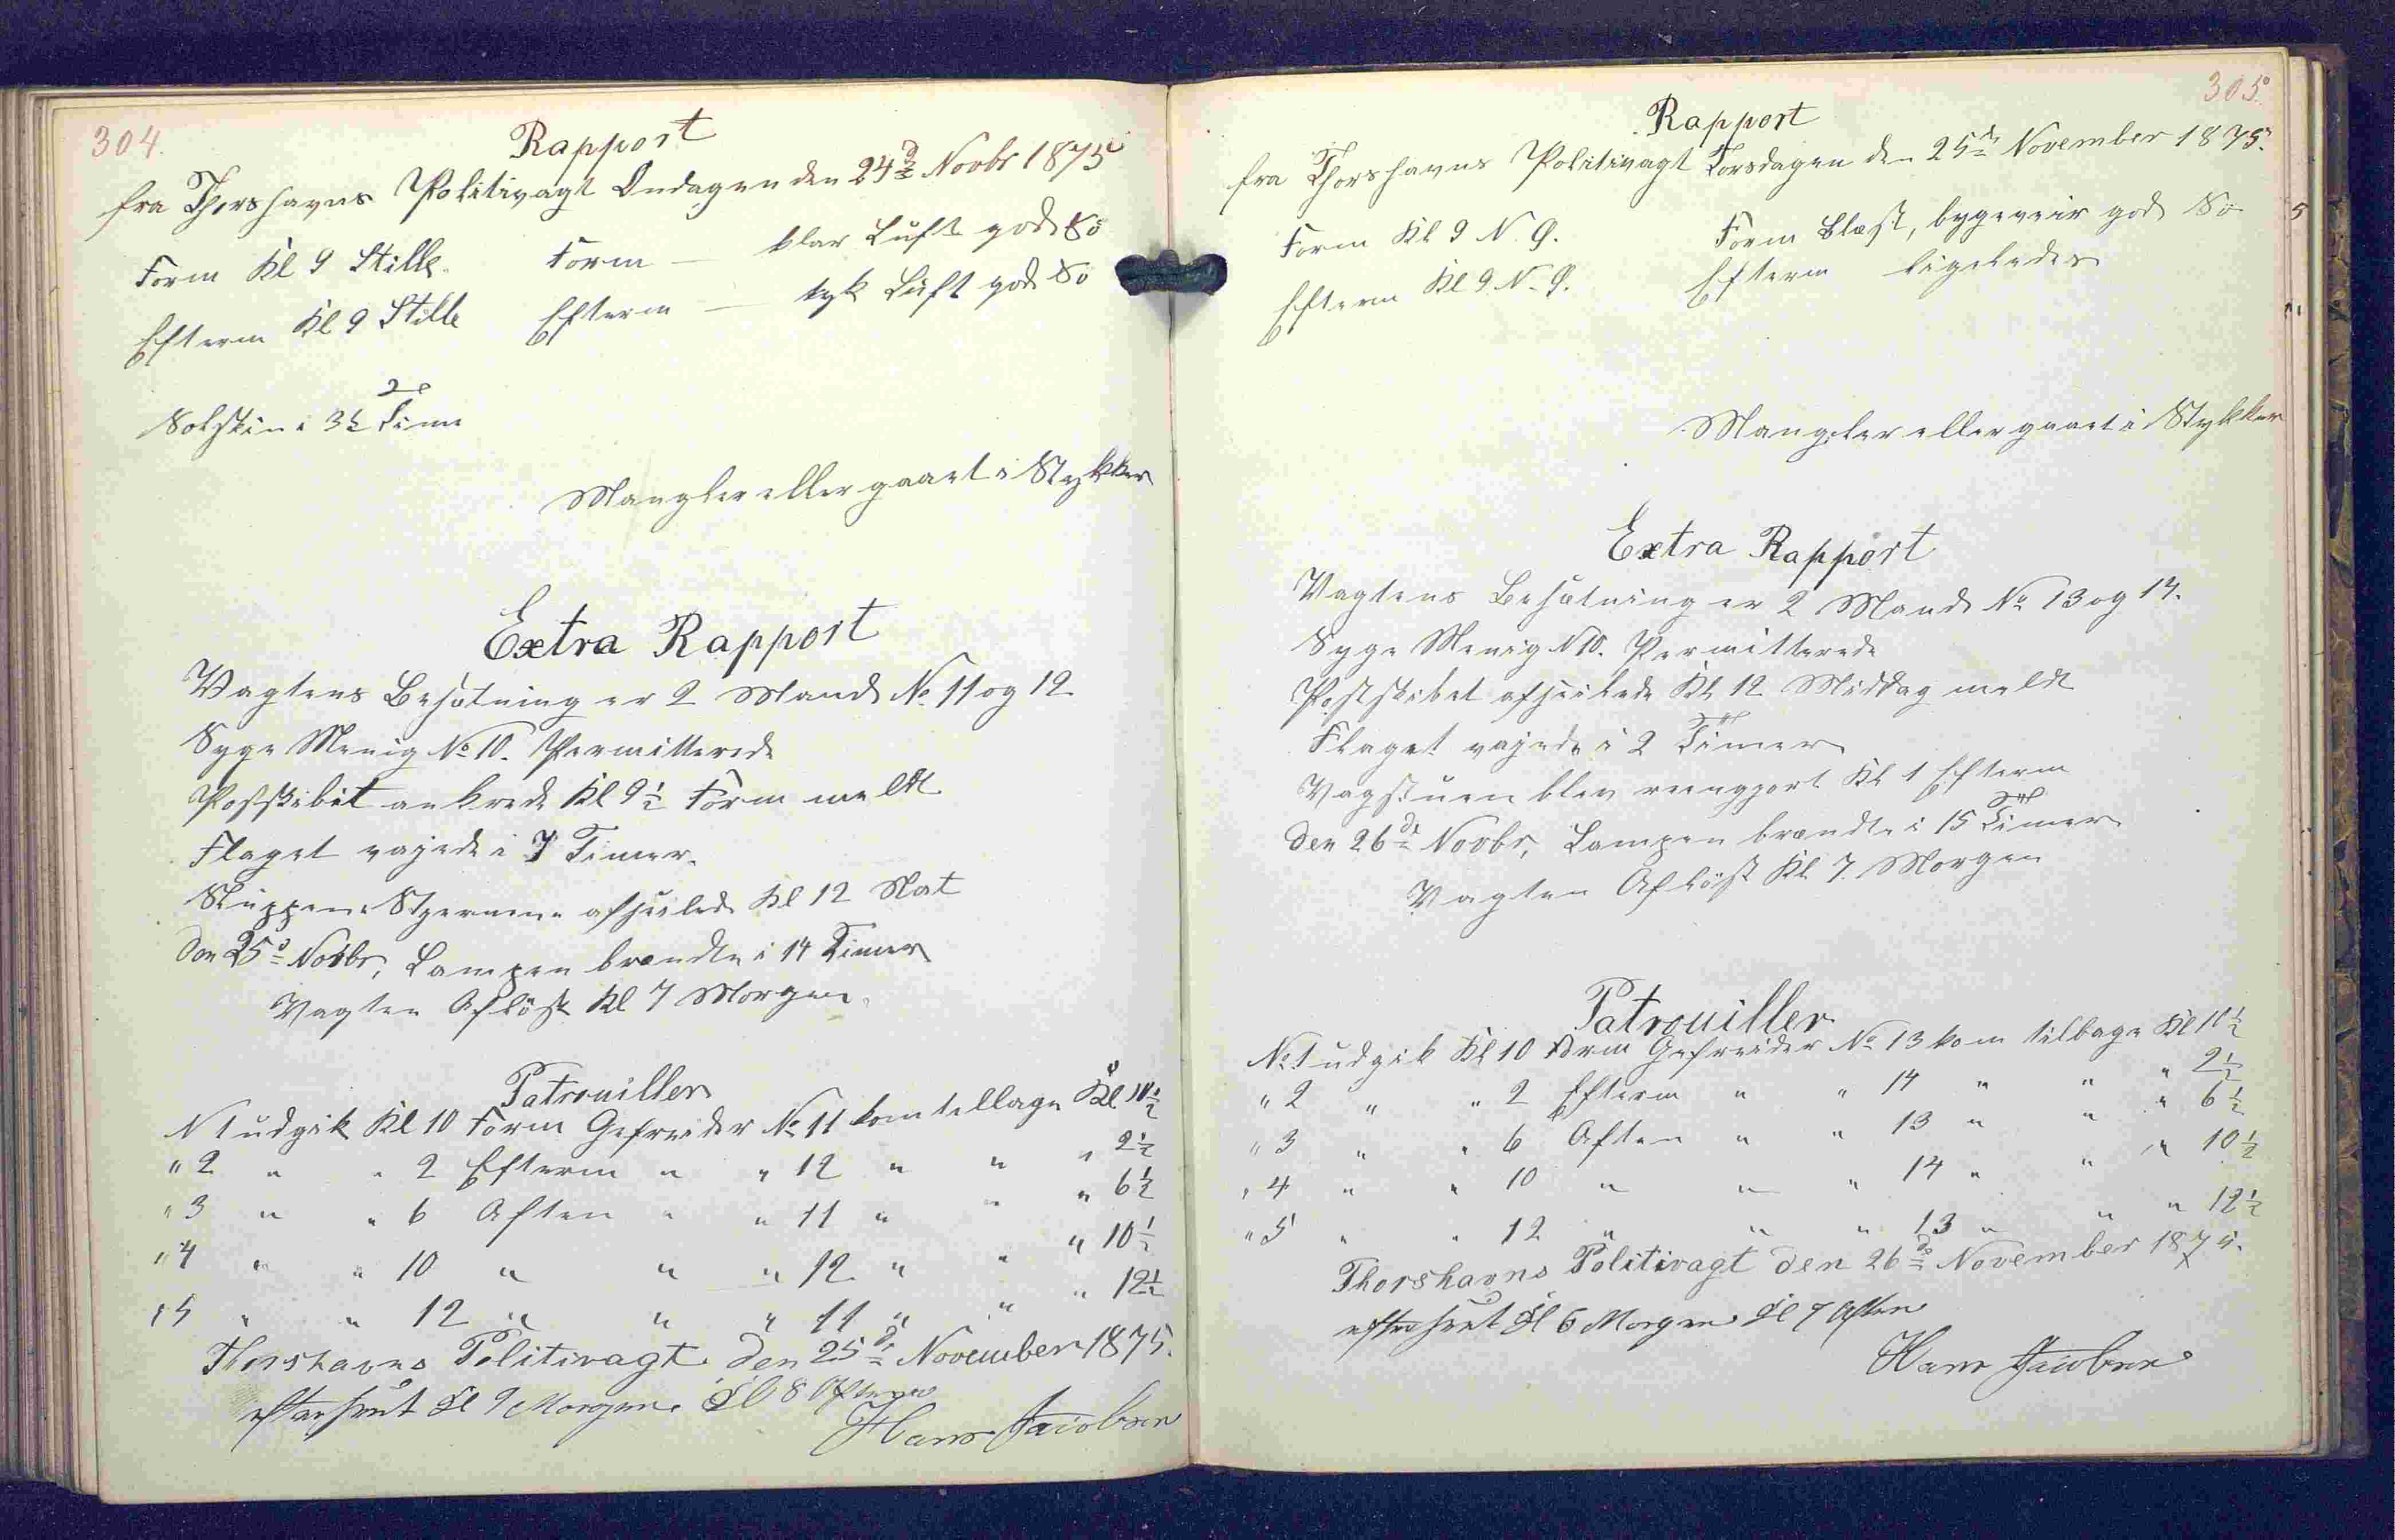 304.
Rapport
fra Thorshavns Politivagt Onsdagen den 24de Novbr 1875
Form Kl 9 Stille. Form — klar Luft god Sö
Efterm Kl 9 Stille Efterm — tyk Luft god Sö
Solskin i 3½ Time
Mangler eller gaaet i Stykker
Extra Rapport
Vagtens Besætning er 2 Mand No. 11 og 12
Syge Menig No 10. Permitterede
Postskibet ankrede Kl 9½ Form meldt
Flaget vajede i 7 Timer.
Sluppen Stjernen afseilede Kl 12 Nat
den 25de Novbr, Lampen brændte i 14 Timer
Vagten Aflöst Kl 7 Morgen.
Patrouiller
N 1 udgik Kl 10 Form Gefreider No 11 kom tilbage Kl 10½
" 2 " " 2 Efterm " " 12 " " " 2½
" 3 " " 6 Aften " " 11 " " " 6½
" 4 " " 10 " " " 12 " " " 10½
" 5 " " 12 " " " 11 " " " 12½
Thorshavns Politivagt den 25de November 1875.
efterseet Kl 9 Morgen Kl 8 Aften
Hans Jacobsen
305.
Rapport
fra Thorshavns Politivagt Torsdagen den 25de November 1875.
Form Kl 9 N. Ø. Form Blæst, bygeveir god Sö
Efterm Kl 9 N. Ø. Efterm ligeledes
Mangler eller gaaet i Stykker
Extra Rapport
Vagtens Besætning er 2 Mand No 13 og 14.
Syge Menig N 10. Permitterede
Postskibet afseilede Kl 12 Middag meldt
Flaget vajede i 2 Timer
Vagstuen blev reengjort Kl 1 Efterm
den 26de Novbr, Lampen brændte i 15 Timer
Vagten Aflöst Kl 7. Morgen
Patrouiller
No 1 udgik Kl 10 Form Gefreider No 13 kom tilbage Kl 10½
" 2 " " 2 Efterm " " 14 " " " 2½
" 3 " " 6 Aften " " 13 " " " 6½
" 4 " " 10 " " " 14 " " " 10½
" 5 " " 12 " " " 13 " " " 12½
Thorshavns Politivagt den 26de November 1875.
efterseet Kl 6 Morgen Kl 7 Aften
Hans Jacobsen